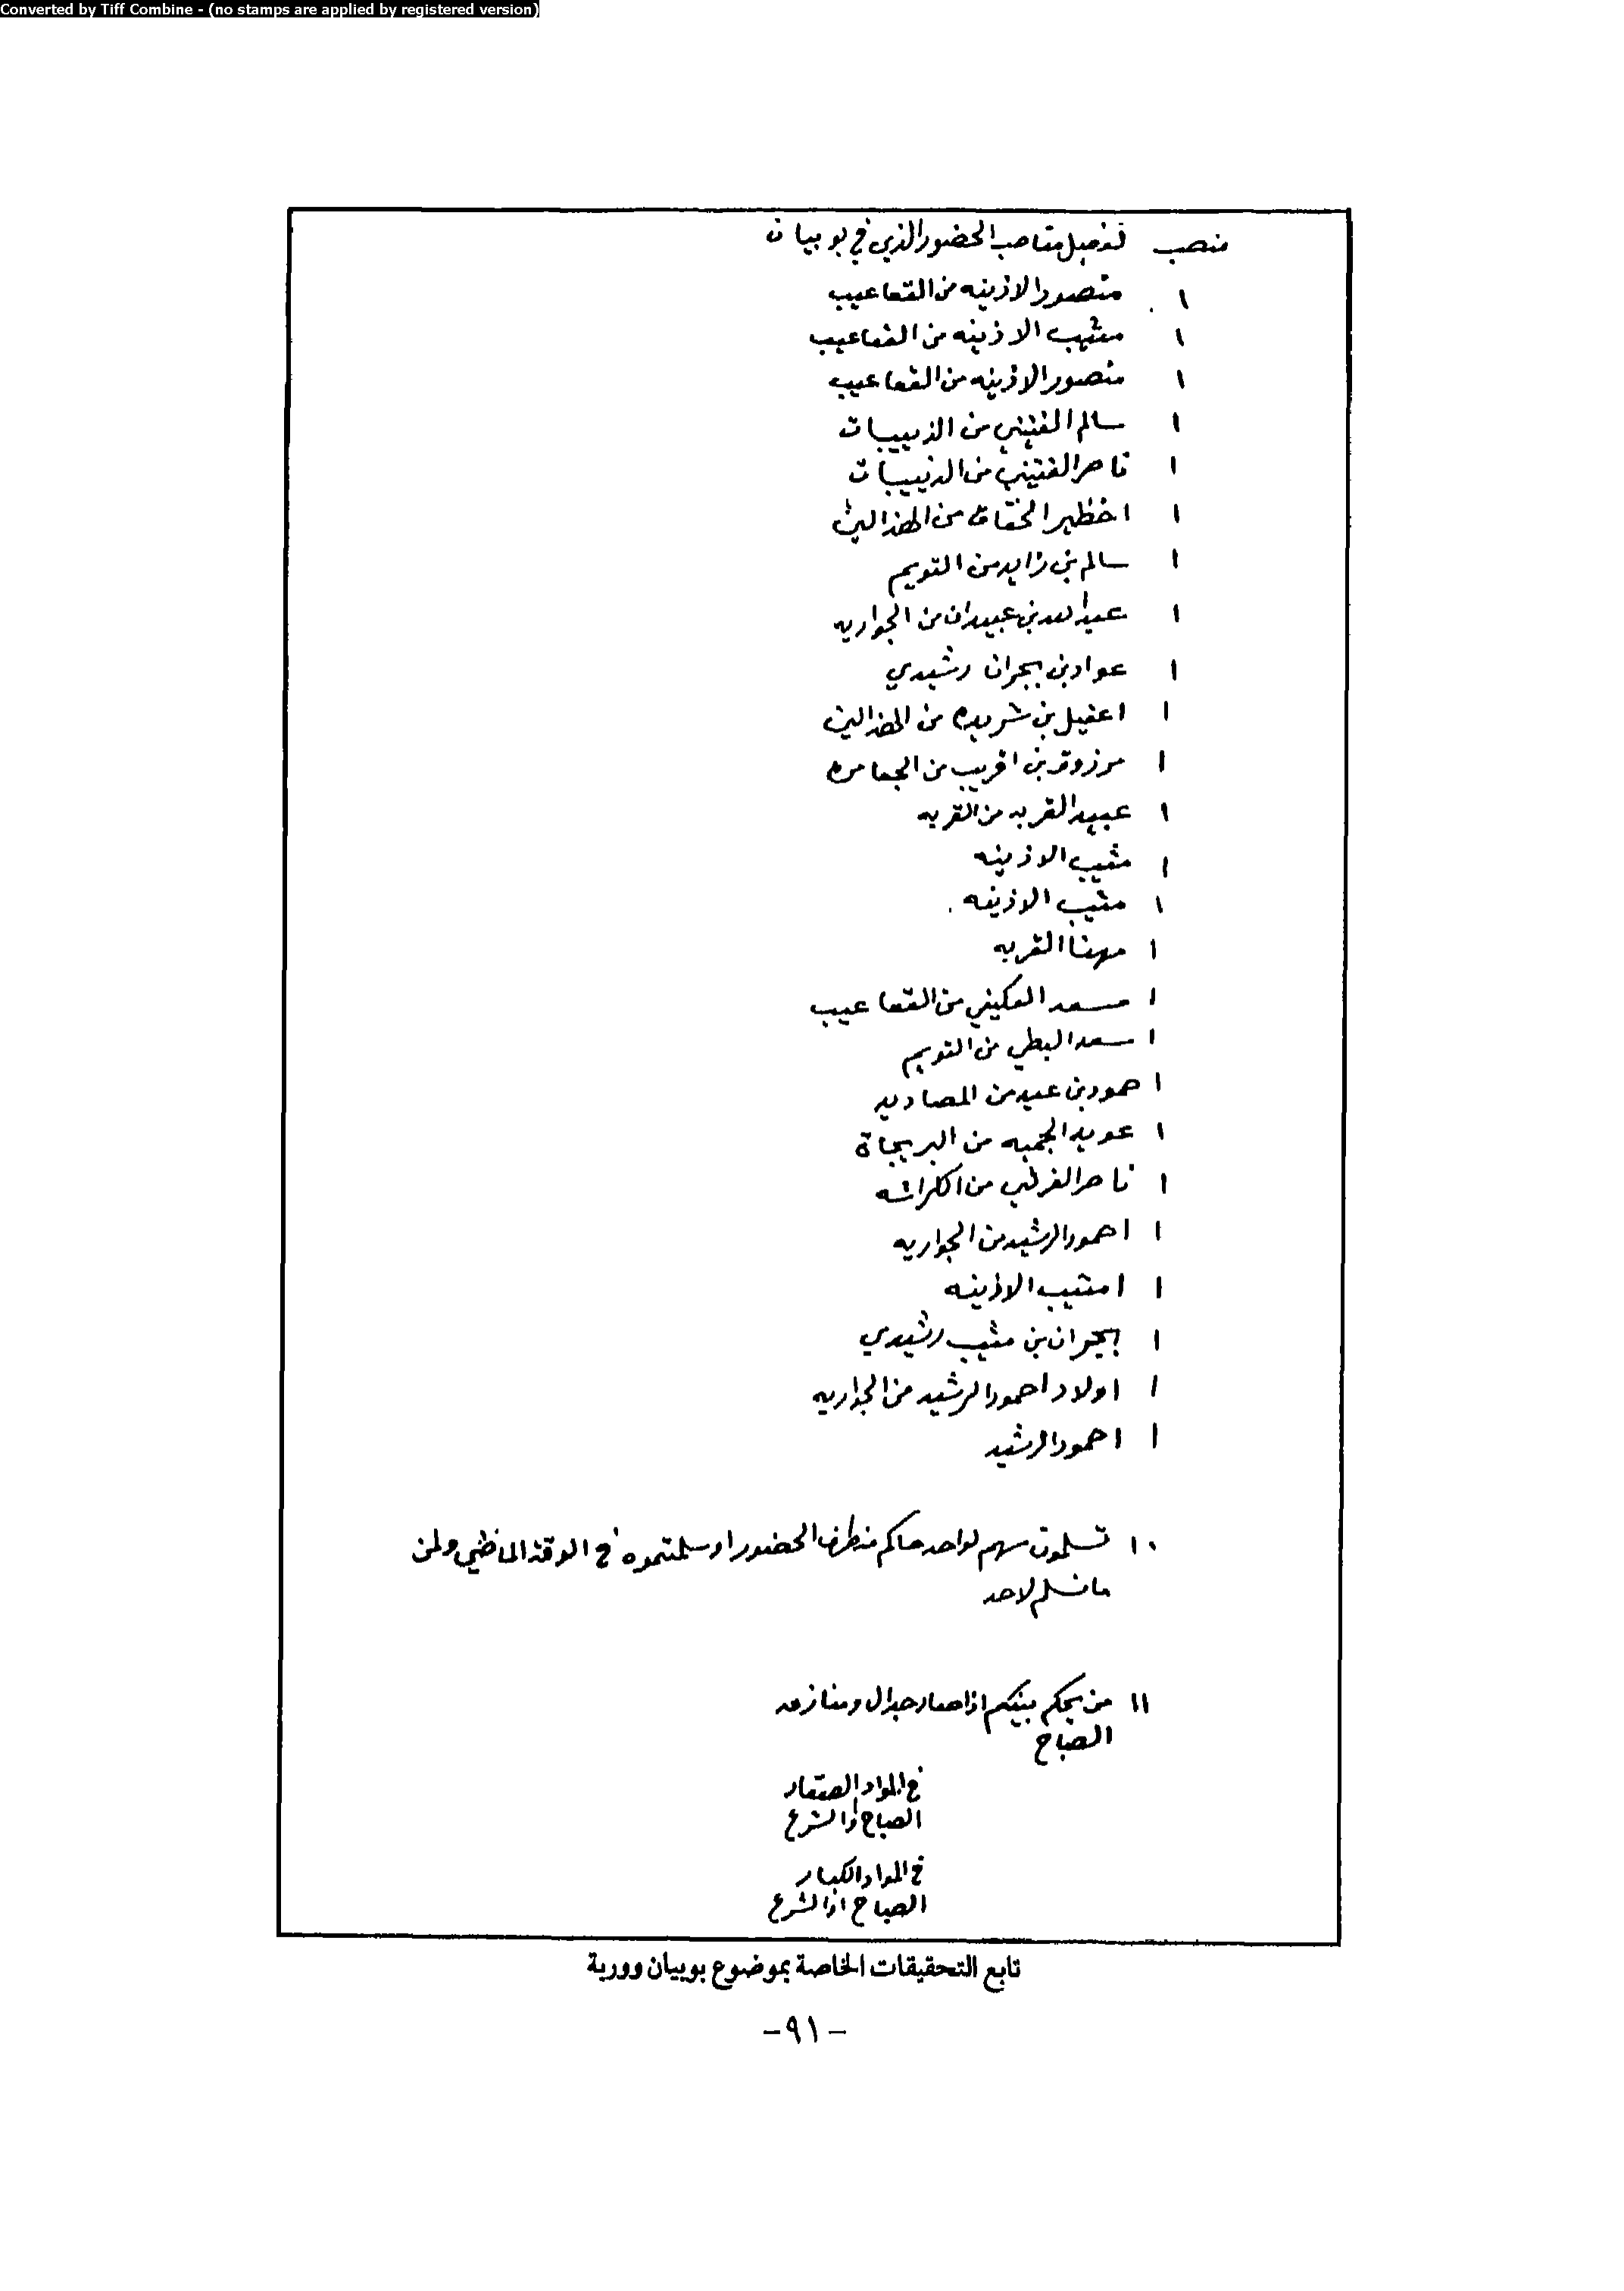 Converted by Tiff Combine - (no stamps are applied by registered version)
منصب تفصيل مناصب الحضور الذي في بوبيان
١ منصور الاذينه من القعاعيب
١ مثيب الاذينه من القعاعيب
١ منصور الاذينه من القعاعيب
١ سالم الفنيني من الذييبات
١ ناصر الفنيني من الذييبات
١ اخظير الخقاق من الهذالين
١ سالم بن زايد من التويم
١ عبدالله بن عبيدان من الجواريه
١ عواد بن بجران رشيدي
١ اعقيل بن شريده من الهذالين
١ مرزوق بن اقريب من الجعامره
١ عبيد القربه من القربه
١ مثيب الاذينه
١ مثيب الاذينه
١ مهنا القربه
١ مسعد العكيني من القعاعيب
١ سعد البطي من التويم
١ حمود بن عيد من المصاديد
١ عويد الجميه من البريجاة
١ ناصر الغرثي من الكراشه
١ احمود الرشيد من الجواريه
١ امثيب الاذينه
١ ابجران بن مثيب رشيدي
١ اولاد احمود الرشيد من الجواريه
١ احمود الرشيد
١٠ تسلمون سهم لواحد حاكم منطرف الحضور او سلمتموه في الوقة الماظي ولمن
مانسلم لاحد
١١ من يحكم بينكم اذا صار جدال ومنازعه
الصباح
في المواد الصغار
الصباح او الشرع
في المواد الكبار
الصباح اوالشرع
تابع التحقيقات الخاصة بموضوع بوبيان ووربة
-٩١-